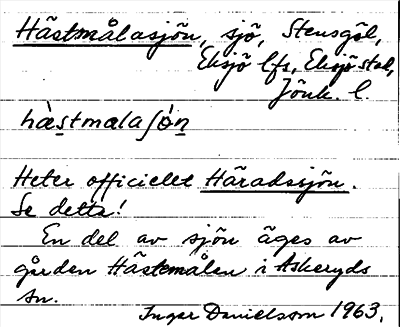 Hästmålasjön, sjö, Stensgöl,
Eksjö lfs, Eksjö stad,
Jönk. l.
hàs̲tmalaʃọ̀n̲
Heter officiellt Häradssjön.
Se detta!
En del av sjön äges av
gården Hästemålen i Askeryds
sn.
Ingar Danielsson 1963.